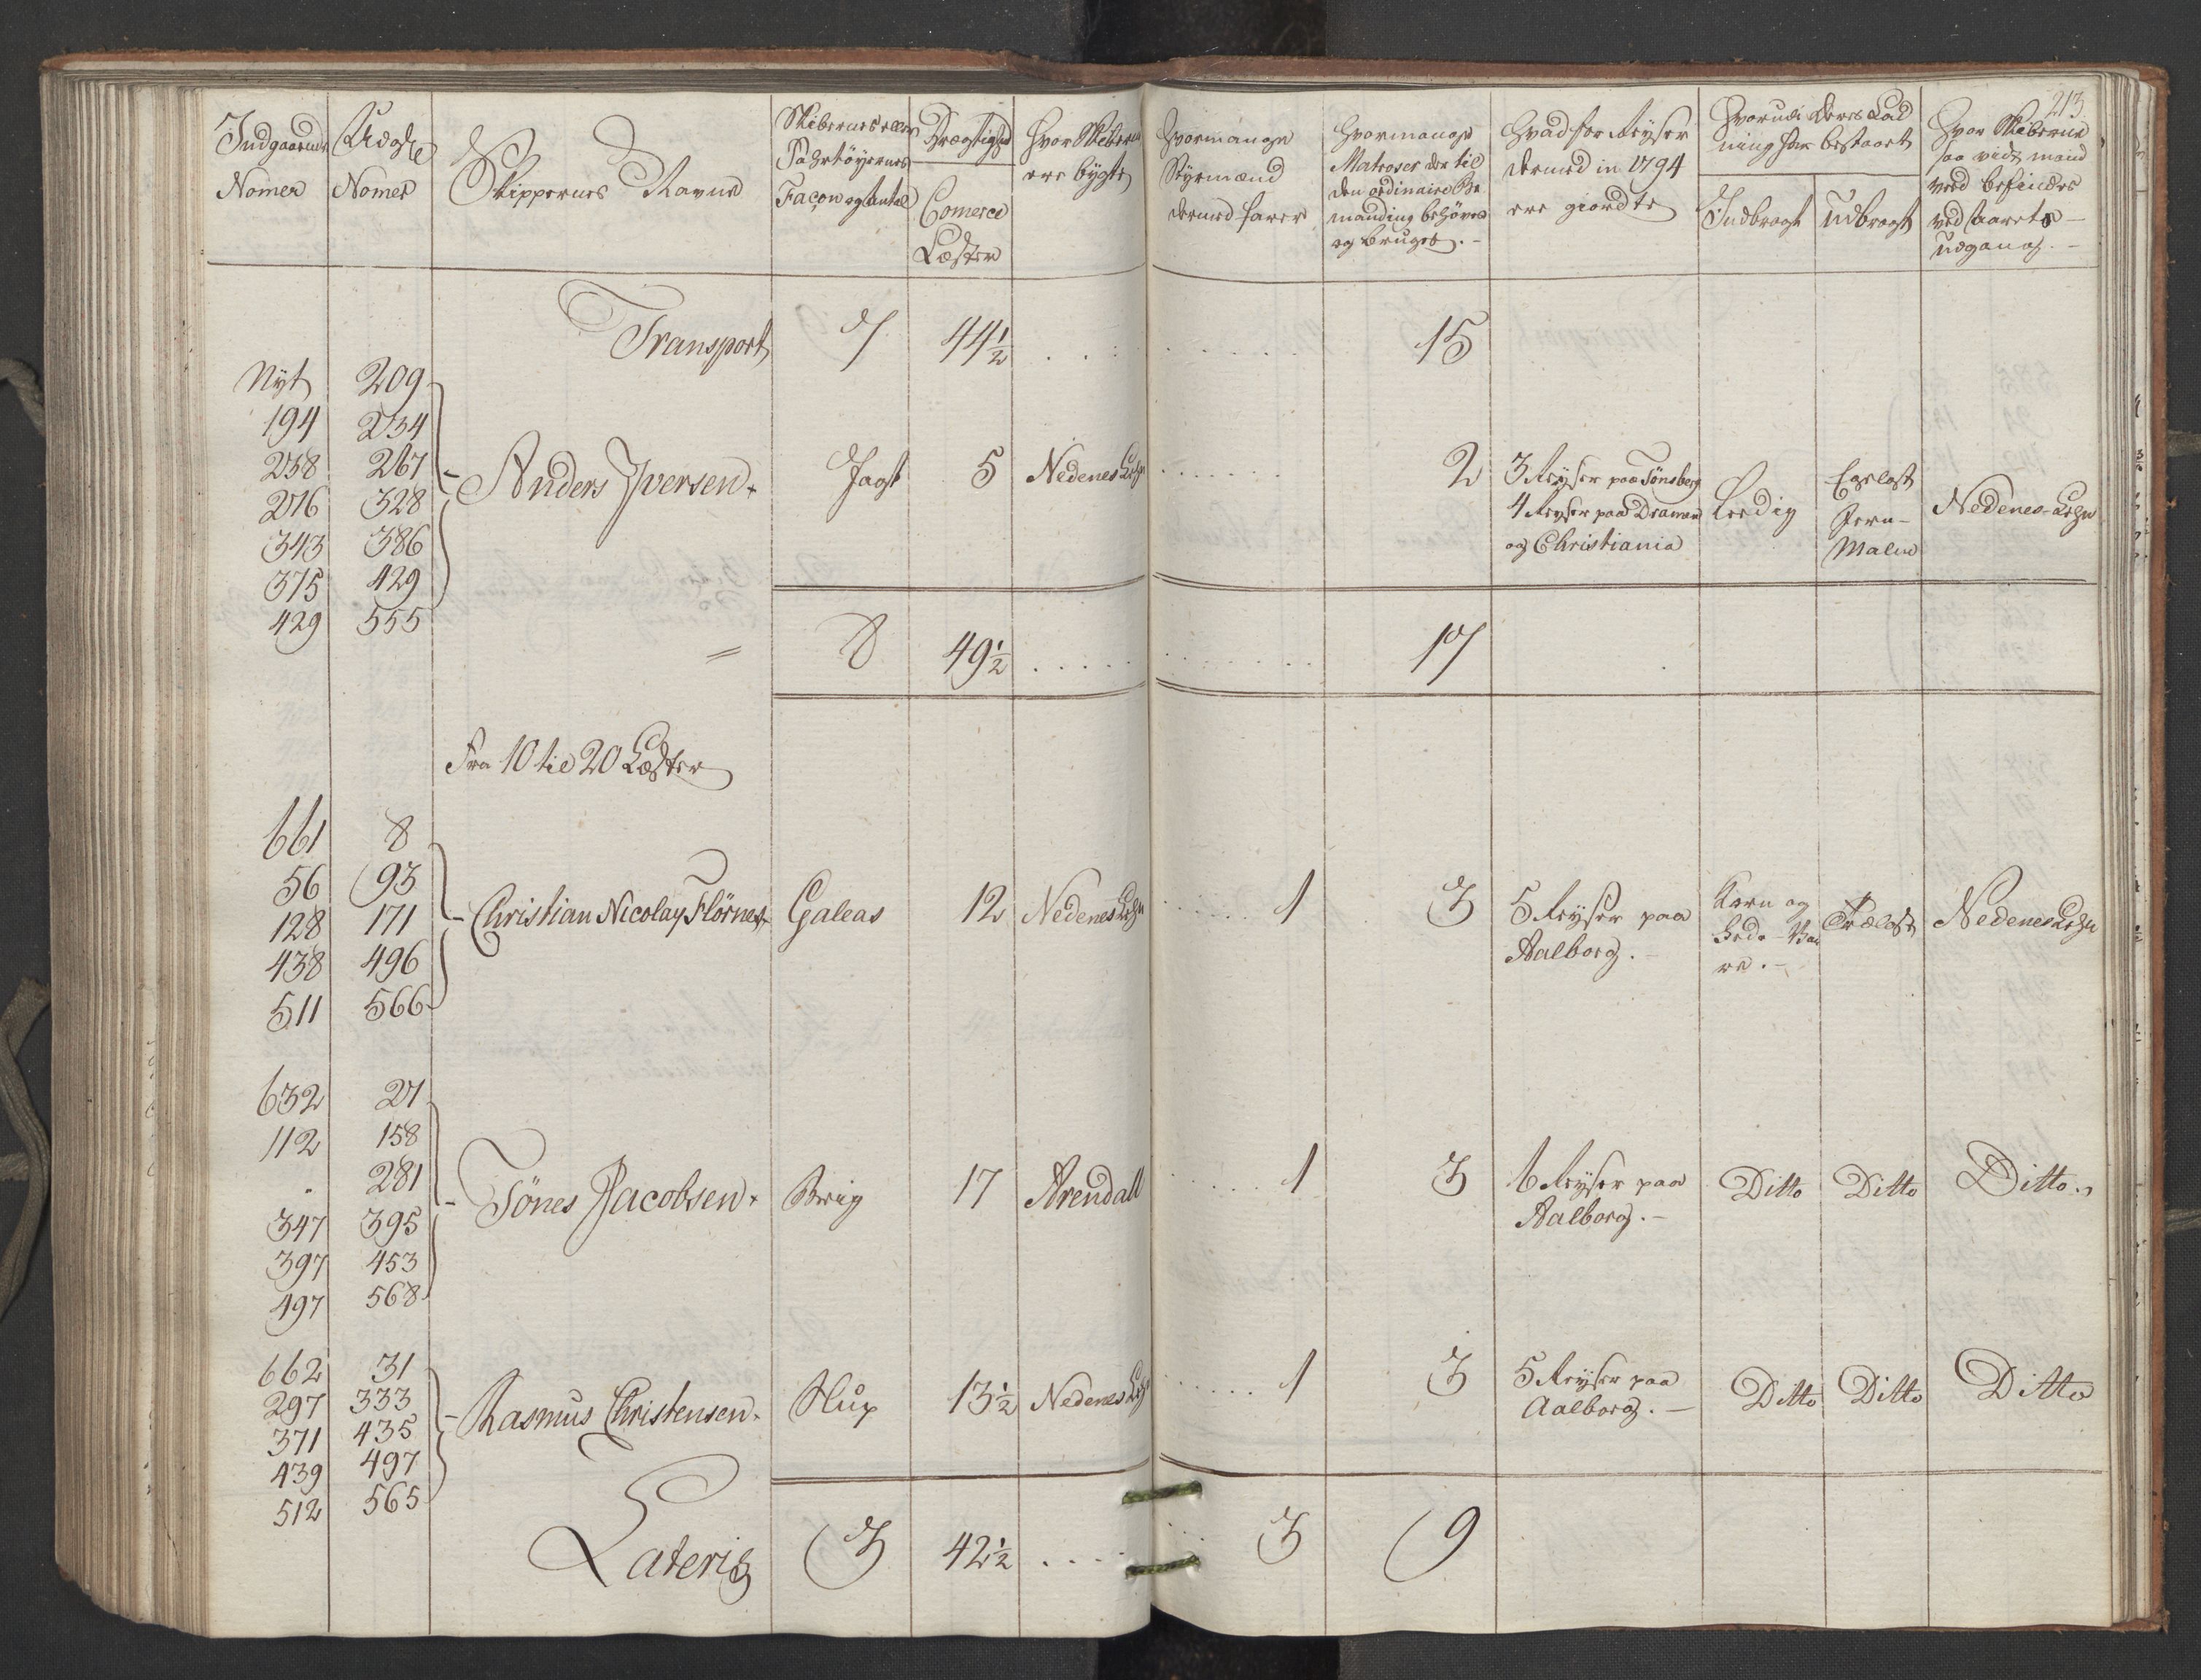 213
Indgaaende Nomer
Udgde Nomer
Skippernes Navne
Skibernes eller Fahrtöyernes Façon og Antal
Drægtighed
Comerce Læster
Hvor Skiberne ere bÿgte
Hvormange Stÿrmænd dermed farer
Hvormange Matroser der til den ordinaire Be manding behöves og bruges.-
Hvad for Reÿser dermed in 1794 ere giordte
Hvorudi deres Lad ning har bestaaet
Indbragt
Udbragt
Hvor Skiberne saa vidt mand veed befindes ved Aarets Udgang.-
Transport 7 44½ 15
Nÿt 209
194 234
238 267
276 328
343 386
375 429
429 555
Anders Iversen. Jagt 5 Nedenes Lehn 2
3 Reÿser paa Tönsberg
4 Reÿser paa Dramen
og Christiania
Leedig
Jern-
Malm
Nedenes-Lehn
8 49½ 17
Fra 10 til 20 Læster
661 8
56 93
128 171
438 496
511 566
Christian Nicolay Flörnes Galeas 12 Nedenes Lehn 1 3
5 Reÿser paa
Aalborg.-
Korn og
Fede-Va
re.-
Trælast
Nedenes Lehn
632 27
112 158
. 281
347 395
397 453
497 568
Tönes Jacobsen. Brig 17 Arendall 1 3
6 Reÿser paa
Aalborg.-
Ditto Ditto Ditto.
662 31
297 333
371 435
439 497
512 565
Rasmus Christensen. Slup 13½ Nedenes Lehn 1 3
5 Reÿser paa
Aalborg.-
Ditto Ditto Ditto
Lateris 3 42½ 3 9